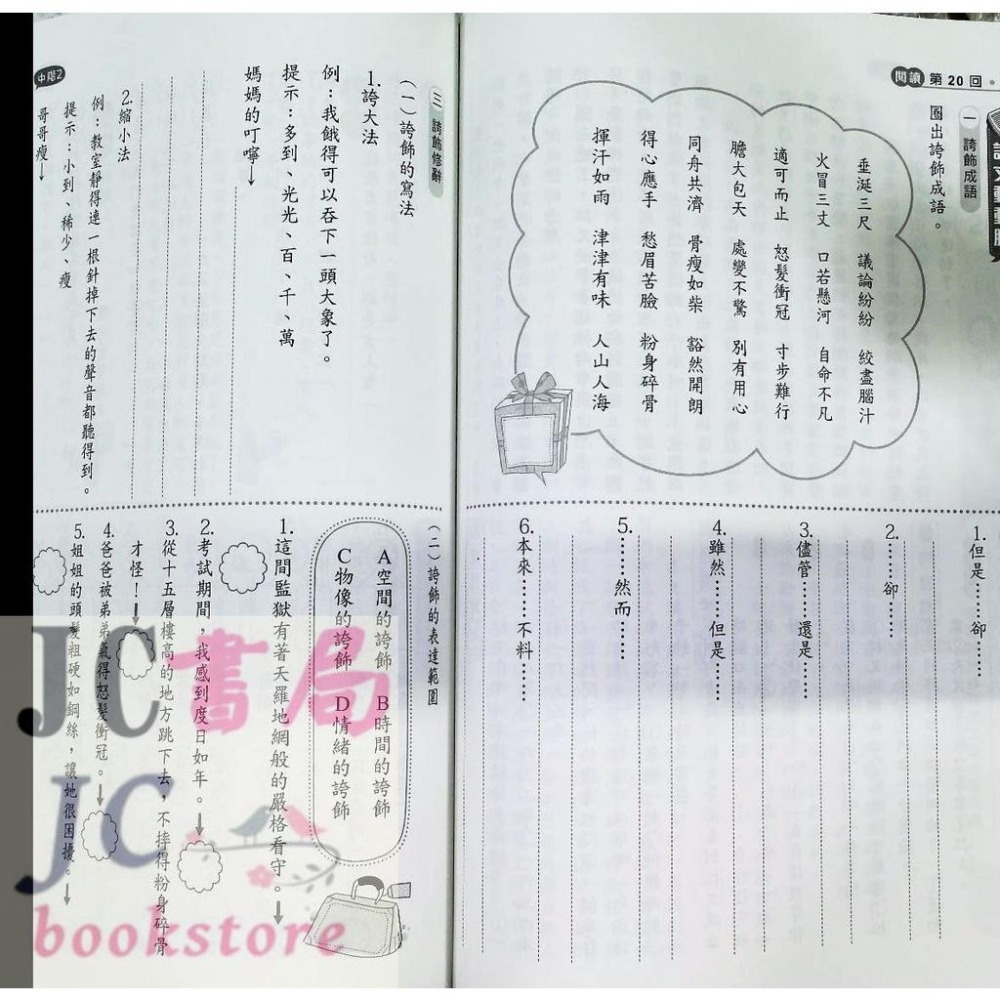 閱讀 第20回
一 誇飾成語
圈出誇飾成語。
垂涎三尺 議論紛紛 絞盡腦汁
火冒三丈 口若懸河 自命不凡
適可而止 怒髮衝冠 寸步難行
膽大包天 處變不驚 別有用心
同舟共濟 骨瘦如柴 豁然開朗
得心應手 愁眉苦臉 粉身碎骨
揮汗如雨 津津有味 人山人海
1.但是……卻……
2.……卻……
3.儘管……還是…
4.雖然……但是……
5.……然而……
6.本來……不料……
三 誇飾修辭
(一)誇飾的寫法
1.誇大法
例：我餓得可以吞下一頭大象了。
提示：多到、光光、百、千、萬
媽媽的叮嚀→
2.縮小法
例：教室靜得連一根針掉下去的聲音都聽得到。
提示：小到、稀少、瘦
哥哥瘦→
中階2
(二)誇飾的表達範圍
A空間的誇飾 B時間的誇飾
C物像的誇飾 D情緒的誇飾
1.這間監獄有著天羅地網般的嚴格看守。→
2.考試期間，我感到度日如年。→
3.從十五層樓高的地方跳下去，不摔得粉身碎骨
才怪！→
4.爸爸被弟弟氣得怒髮衝冠。→
5.姐姐的頭髮粗硬如鋼絲，讓她很困擾。→
JC書局
JC
bookstore